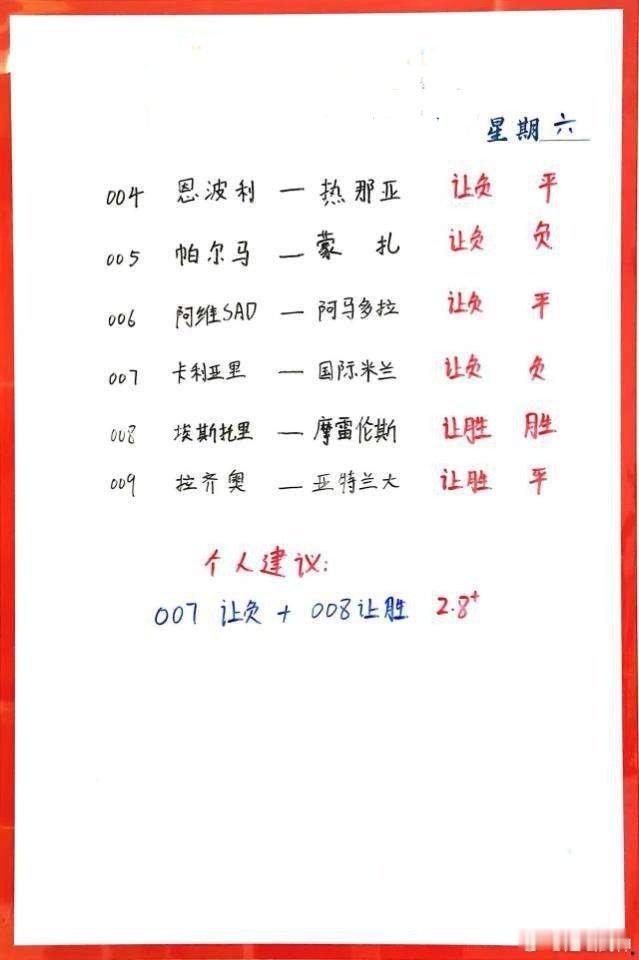 星期六
004 恩波利 — 热那亚 让负 平
005 帕尔马 — 蒙扎 让负 负
006 阿维SAD — 阿马多拉 让负 平
007 卡利亚里 — 国际米兰 让负 负
008 埃斯托里 — 摩雷伦斯 让胜 胜
009 拉齐奥 — 亚特兰大 让胜 平
个人建议:
007 让负 + 008让胜 2.8+